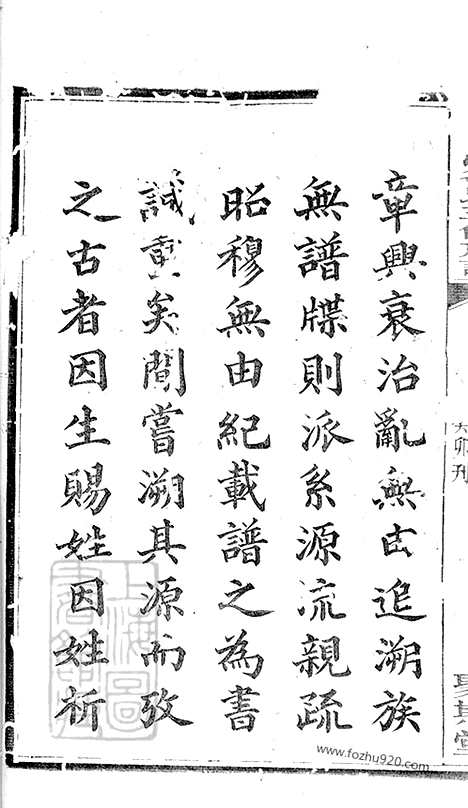 章興衰治亂無由追溯族
無譜牒則派系源流親疏
昭穆無由紀載譜之為書
誠重矣間嘗溯其源而攷
之古者因生賜姓因姓析
卯刋
聚其堂
上海圖
www.fozhu920.com